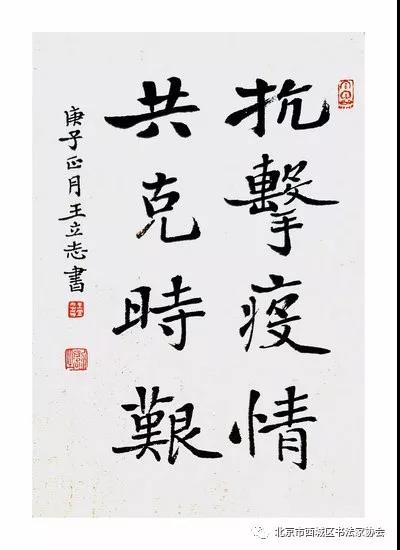 抗擊疫情
共克時艱
庚子正月王立志書
北京市西城区书法家协会